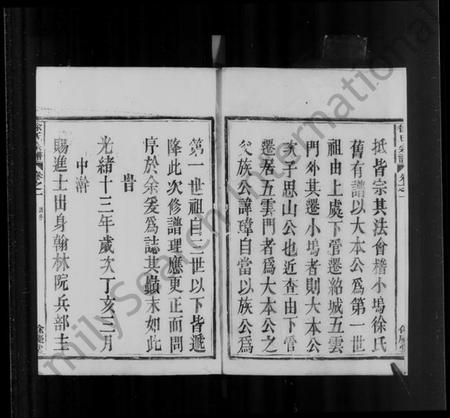 抵皆宗其法會稽小塢徐氏
舊有譜以大本公為第一世
祖由上處下管遷紹城五雲
門外其遷小塢者則大本公
次子思山公也近查由下管
遷居五雲門者為大本公之
父族公諱瑋自當以族公為
第一世祖自二世以下皆遞
降此次修譜理應更正而問
序於余爰為誌其顛末如此
旹
光緒十三年歲次丁亥三月
中澣
賜進士出身翰林院兵部主
FamilySearch International